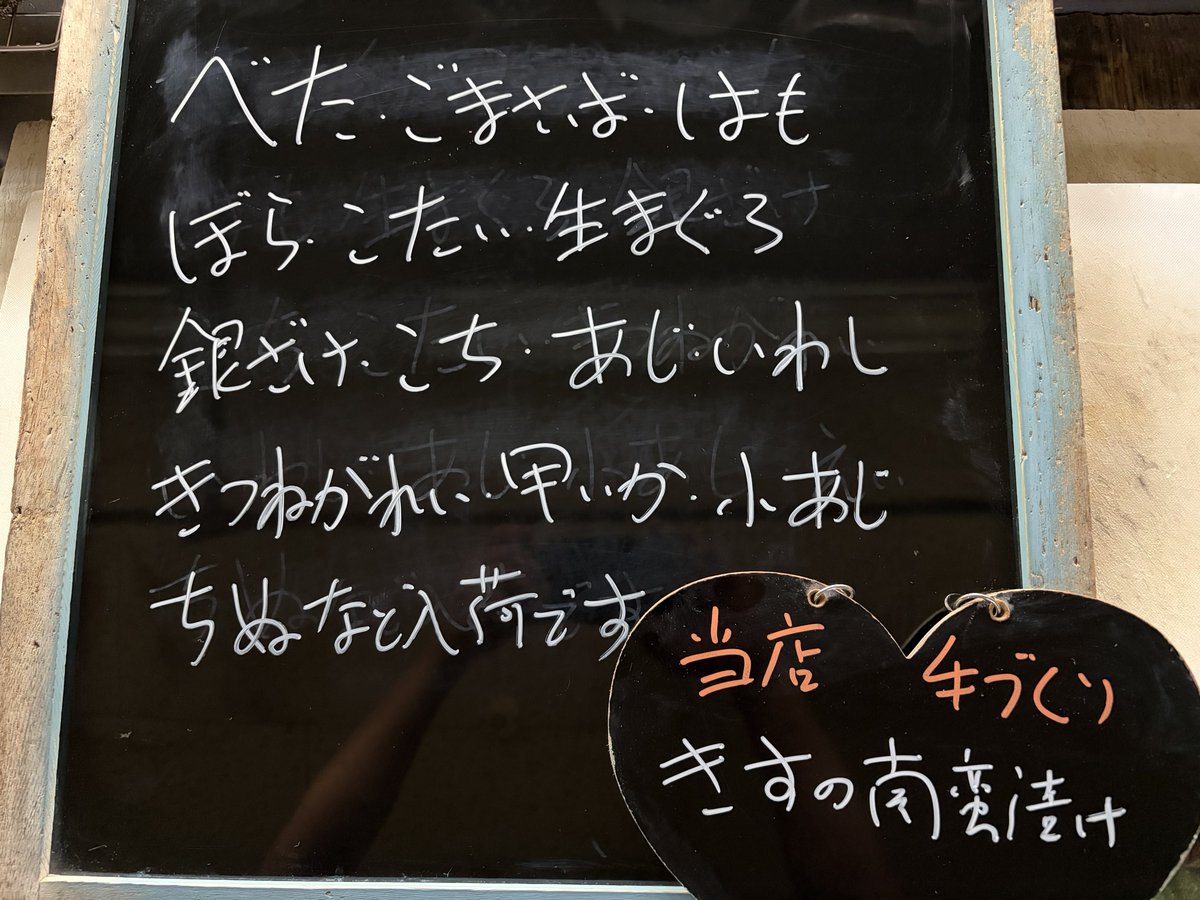 べた・ごまさば・はも
ぼら・こたい・生まぐろ
銀ざけ・こち・あじ・いわし
きつねがれい・甲いか・小あじ
ちぬなど入荷です
当店 手づくり
きすの南蛮漬け